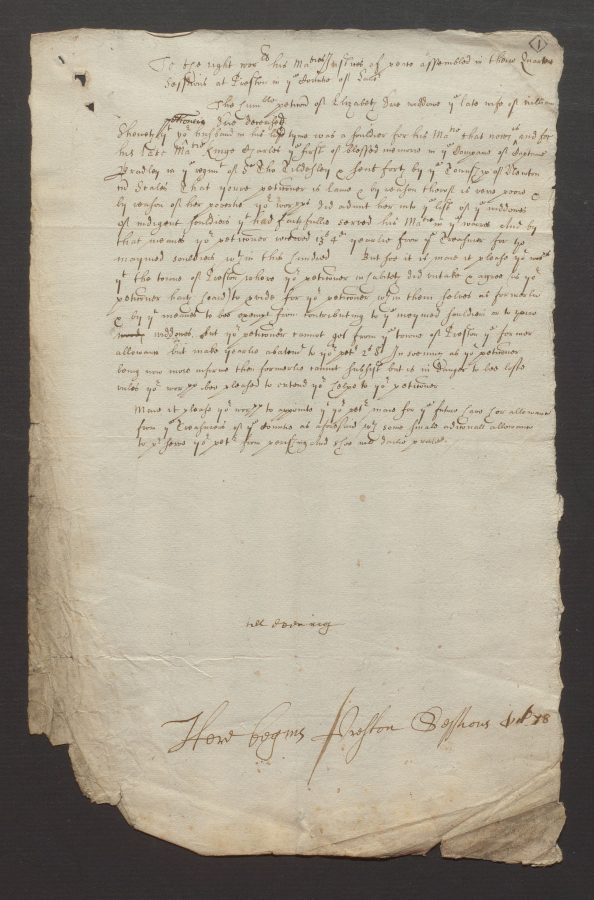 1
To the right worpll his Maties Justices of peace assembled in theire Quarter
Sessions at Preston in ye Countie of Lanc
The humble peticon of Elizabeth widdow ye late wife of William
deceased
Sheweth yt yor petitioner's husband in his life tyme was a souldier for his Matie that now is and for
his late Matie Kinge Charles ye first of blessed memorie in ye Company of Captaine
Bradley in ye regimt of Sr Tho Tildesley & sent forth by ye
That youre petitioner is lame & by reason thereof is verie poore &
by reason of her povertie yor worpps did admit her into ye list of ye widdowes
of indigent souldiers yt had faithfullie served his Matie in ye warrs And by
that meanes yor petitioner received 13s 4d yearlie from ye Treasurer for ye
maymed souldiers wth in this hundred But soe it is maie it please yor worpps
yt the towne of Preston where yor petitioner inhabited did undertake & agree (as yor
petitioner hath heard) to pvide for yor petitioner wth in them selves as formerlie
& by yt meanes to bee exempt from contributing to ye maymed souldiers or to their
widdowes. But yor petitioner cannot get from ye towne of Preston ye former
allowance but make yearlie abatemt to yor petr 2s 8d In soe much as yor petitioner
being now more infirme then formerlie cannot subsist but is in danger to bee lost
unles yor worpps bee pleased to extend yor helpe to yor petitioner
Maie it please yor worpps to appointe yt yor petr maie for ye future have her allowance
from ye Treasurer of ye Countie as aforesaid wth some smale aditionall allowance
to pserve yor petr from perishing And shee will dailie praie.
Here begins Preston Sessions 78